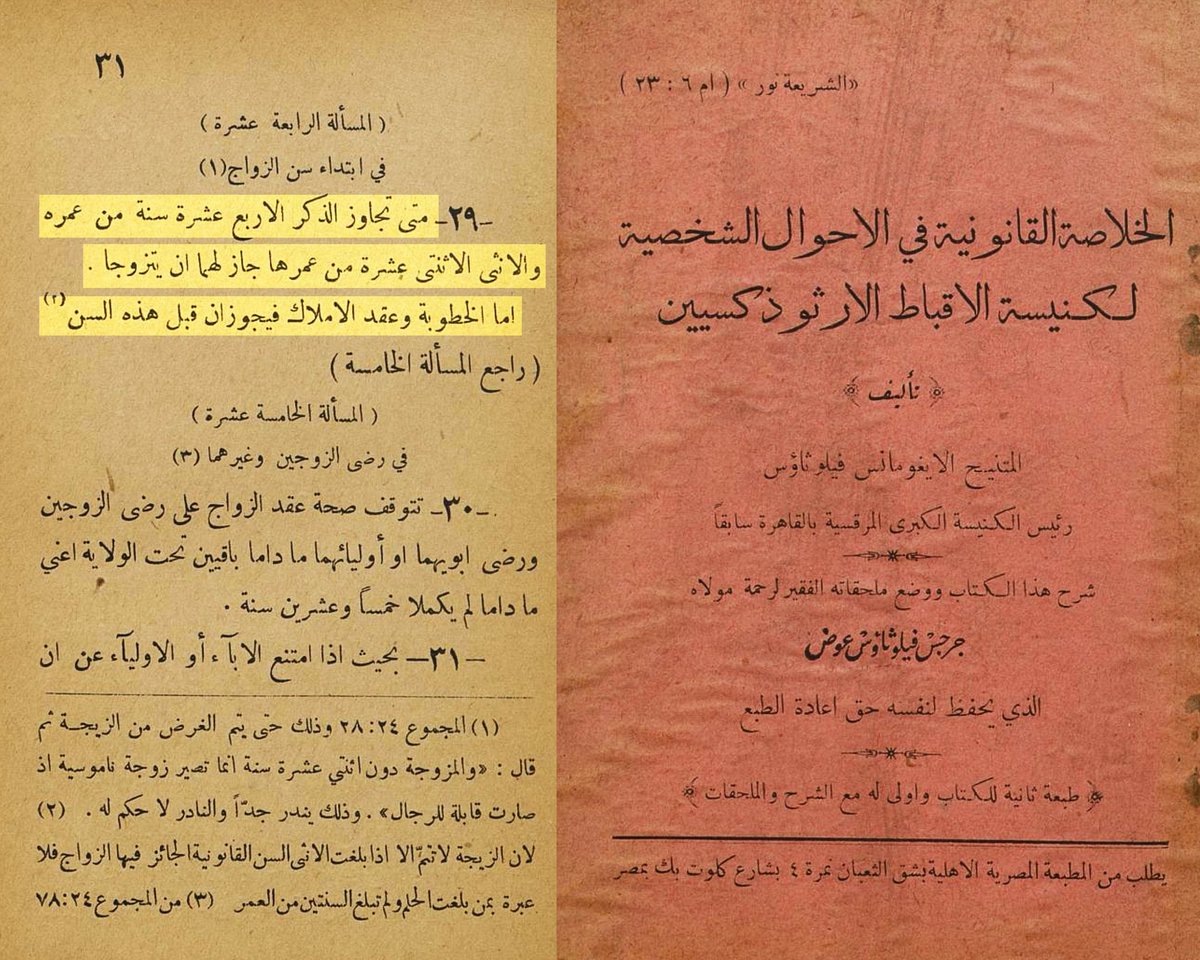 «الشريعة نور» ( ام ٦ : ٢٣ )
الخلاصة القانونية في الاحوال الشخصية
لكنيسة الاقباط الارثوذكسيين
﴿ تأليف ﴾
المتنيح الايغومانس فيلوثاؤس
رئيس الكنيسة الكبرى المرقسية بالقاهرة سابقاً
شرح هذا الكتاب ووضع ملحقاته الفقير لرحمة مولاه
جرجس فيلوثاؤس عوض
الذي يحفظ لنفسه حق اعادة الطبع
﴿ طبعة ثانية للكتاب واولى له مع الشرح والملحقات ﴾
يطلب من المطبعة المصرية الاهلية بشق الثعبان نمرة ٤ بشارع كلوت بك بمصر
٣١
( المسألة الرابعة عشرة )
في ابتداء سن الزواج (١)
–٢٩– متى تجاوز الذكر الاربع عشرة سنة من عمره
والانثى الاثنتى عشرة من عمرها جاز لهما ان يتزوجا .
اما الخطوبة وعقد الاملاك فيجوزان قبل هذه السن (٢)
( راجع المسألة الخامسة )
( المسألة الخامسة عشرة )
في رضى الزوجين وغيرهما (٣)
–٣٠– تتوقف صحة عقد الزواج على رضى الزوجين
ورضى ابويهما او أوليائهما ما داما باقيين تحت الولاية اعني
ما داما لم يكملا خمساً وعشرين سنة .
–٣١– بحيث اذا امتنع الابآء أو الاوليآء عن ان
(١) المجموع ٢٤:٢٨ وذلك حتى يتم الغرض من الزيجة ثم
قال : «والمزوجة دون اثنتي عشرة سنة انما تصير زوجة ناموسية اذ
صارت قابلة للرجال» . وذلك يندر جدّاً والنادر لا حكم له . (٢)
لان الزيجة لا تتمّ الا اذا بلغت الانثى السن القانونية الجائز فيها الزواج فلا
عبرة بمن بلغت الحلم ولم تبلغ السنتين من العمر (٣) من المجموع ٢٤:٧٨